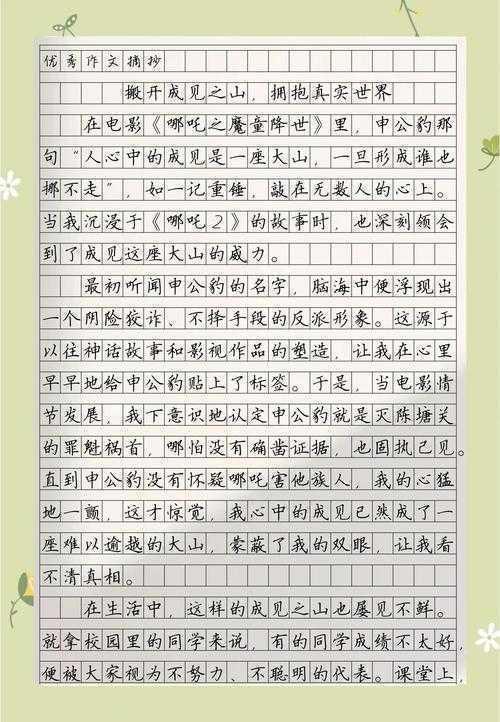 优秀作文摘抄
搬开成见之山，拥抱真实世界
在电影《哪吒之魔童降世》里，申公豹那
句“人心中的成见是一座大山，一旦形成谁也
挪不走”，如一记重锤，敲在无数人的心上。
当我沉浸于《哪吒2》的故事时，也深刻领会
到了成见这座大山的威力。
最初听闻申公豹的名字，脑海中便浮现出
一个阴险狡诈、不择手段的反派形象。这源于
以往神话故事和影视作品的塑造，让我在心里
早早地给申公豹贴上了标签。于是，当电影情
节发展，我下意识地认定申公豹就是灭陈塘关
的罪魁祸首，哪怕没有确凿证据，也固执己见。
直到申公豹没有怀疑哪吒害他族人，我的心猛
地一颤，这才惊觉，我心中的成见已然成了一
座难以逾越的大山，蒙蔽了我的双眼，让我看
不清真相。
在生活中，这样的成见之山也屡见不鲜。
就拿校园里的同学来说，有的同学成绩不太好，
便被大家视为不努力、不聪明的代表。课堂上，